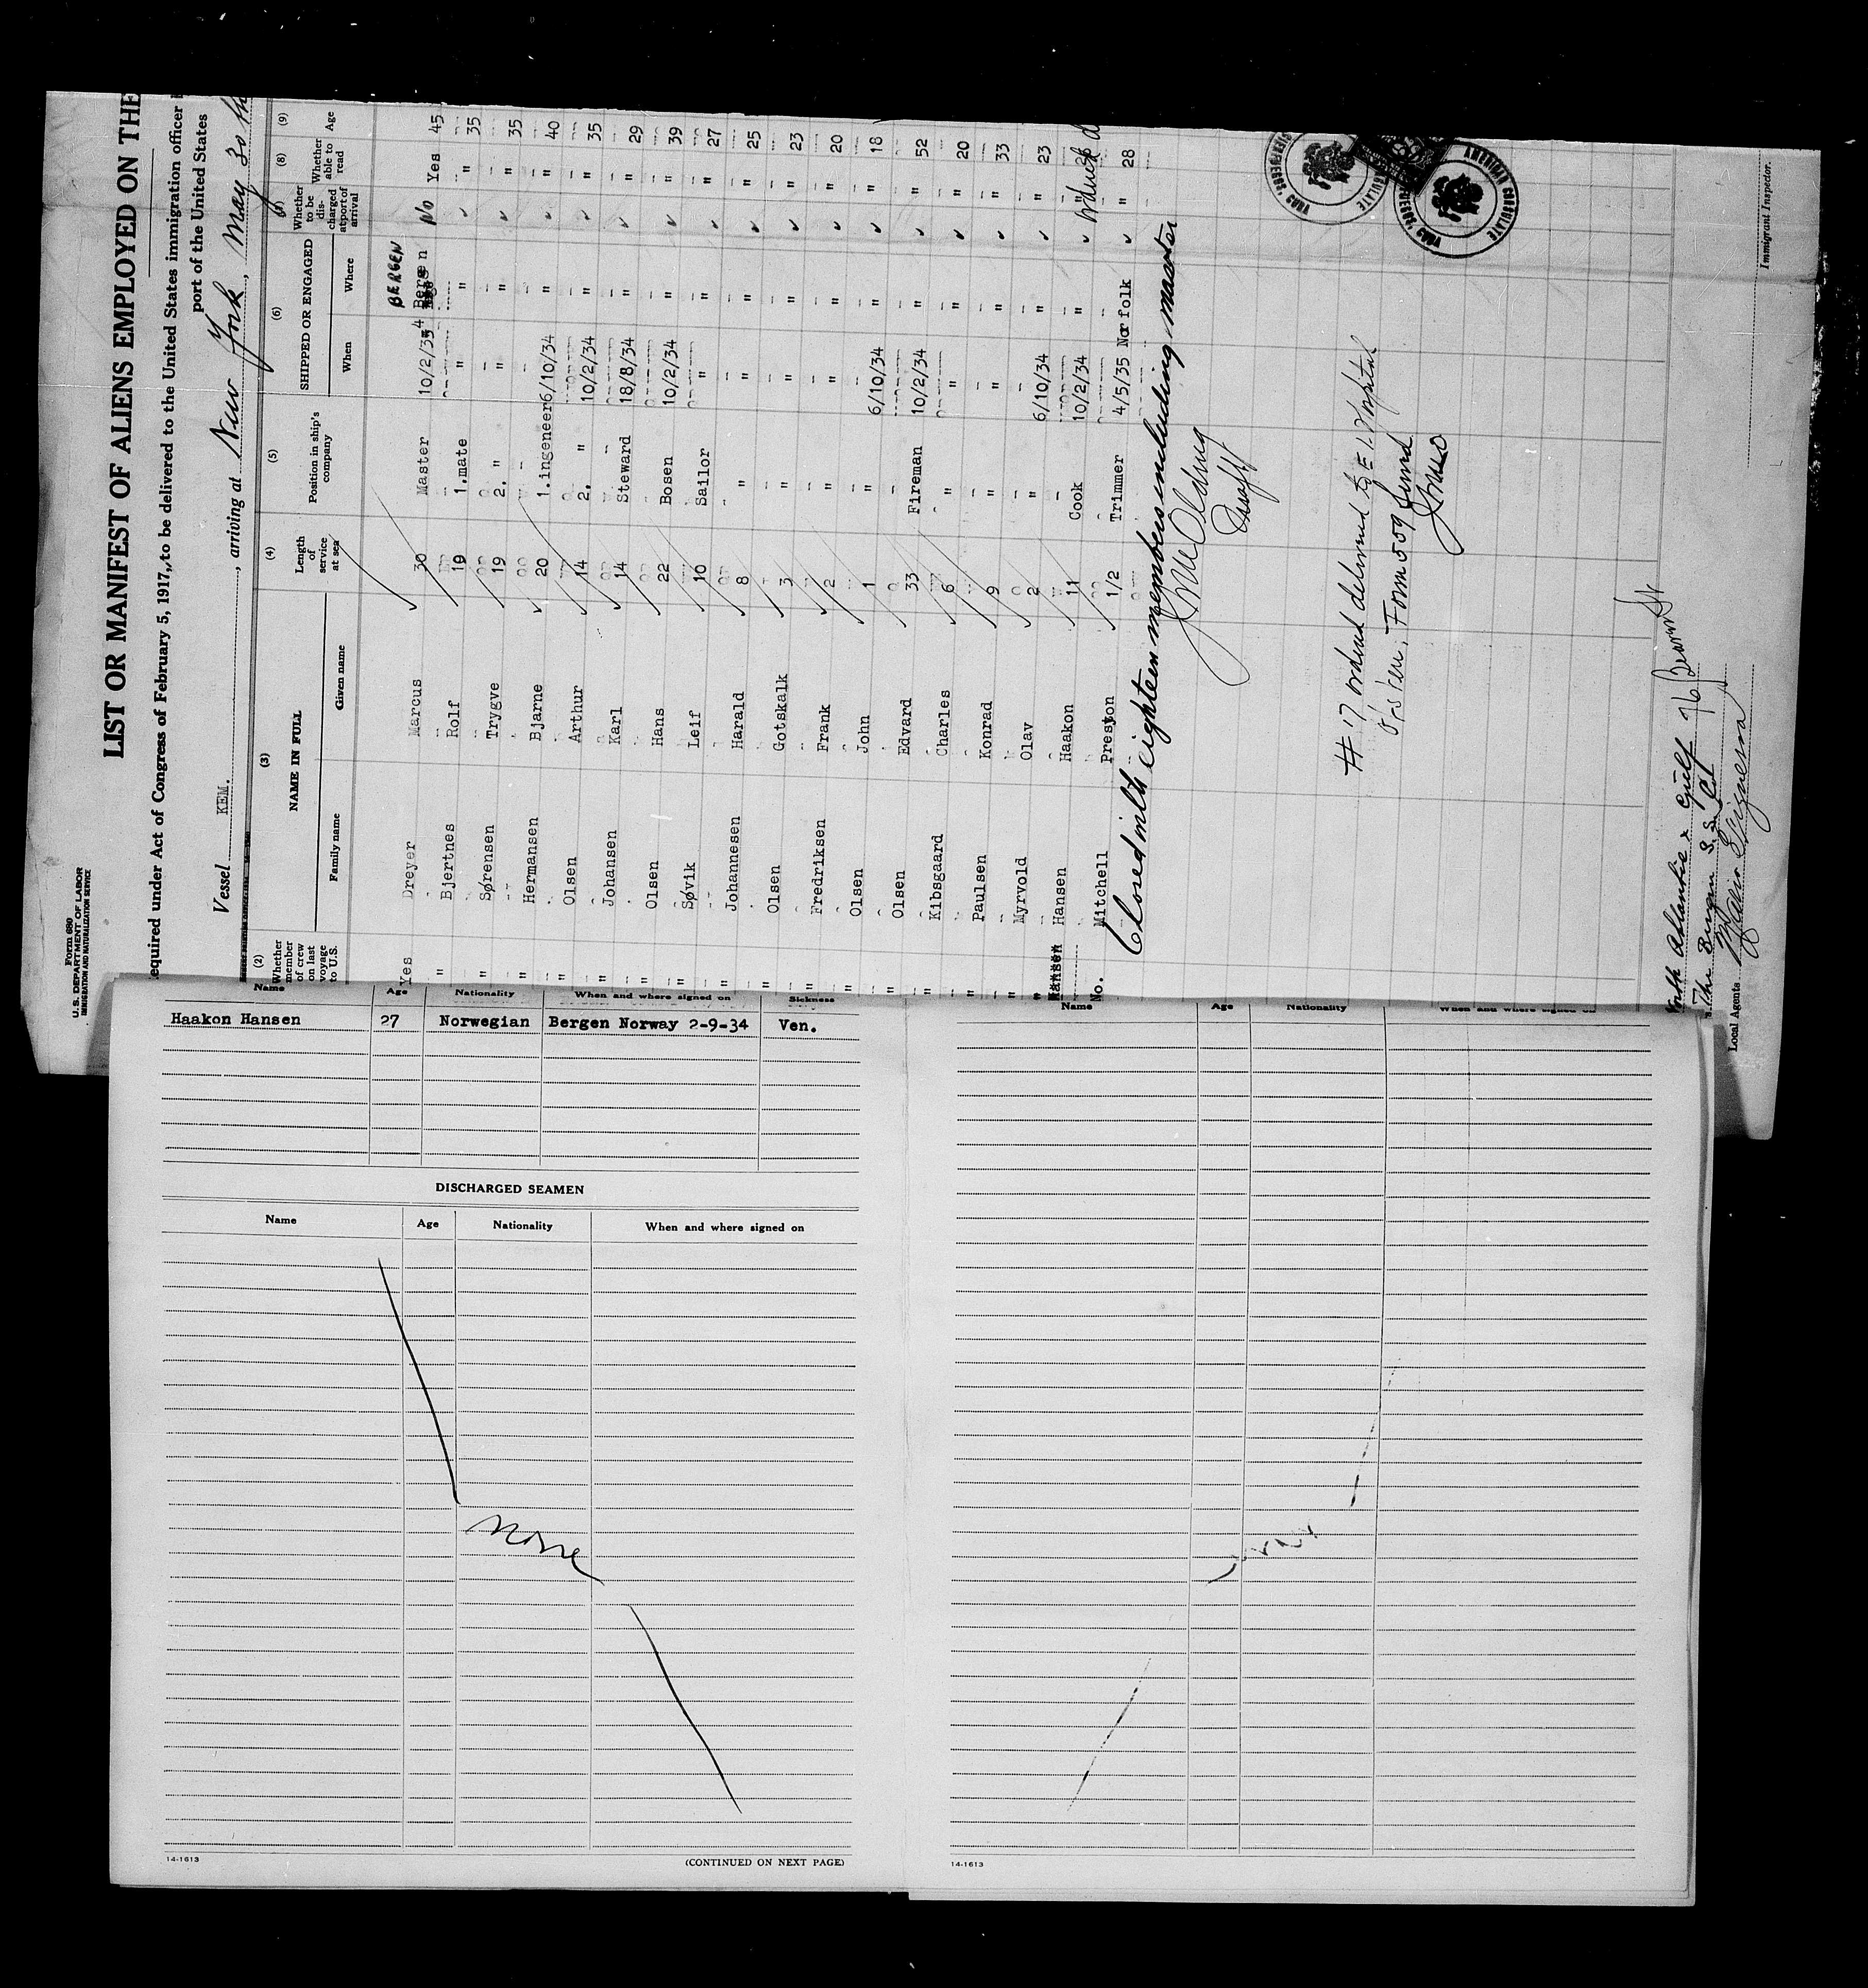 Form 680
U.S. DEPARTMENT OF LABOR
IMMIGRATION AND NATURALIZATION SERVICE
LIST OR MANIFEST OF ALIENS EMPLOYED ON THE
equired under Act of Congress of February 5, 1917, to be delivered to the United States immigration officer
port of the United States
Vessel KEM. , arriving at New York, May 30 th
(2) Whether member of crew on last voyage to U.S.
(3) NAME IN FULL Family name Given name
(4) Length of service at sea
(5) Position in ship's company
(6) SHIPPED OR ENGAGED When Where
Whether to be discharged at port of arrival
(8) Whether able to read
(9) Age
BERGEN
Yes Dreyer Marcus 30 Master 10/2/34 Bergen No Yes 45
" Bjertnes Rolf 19 1.mate " " ✓ " 35
" Sørensen Trygve 19 2. " " " ✓ " 35
" Hermansen Bjarne 20 1.ingeneer 6/10/34 " ✓ " 40
" Olsen Arthur 14 2. " 10/2/34 " ✓ " 35
" Johansen Karl 14 Steward 18/8/34 " ✓ " 29
" Olsen Hans 22 Bosen 10/2/34 " ✓ " 39
" Søvik Leif 10 Sailor " " ✓ " 27
" Johannesen Harald 8 " " " ✓ " 25
" Olsen Gotskalk 3 " " " ✓ " 23
" Fredriksen Frank 2 " " " ✓ " 20
" Olsen John 1 " 6/10/34 " ✓ " 18
" Olsen Edvard 33 Fireman 10/2/34 " ✓ " 52
" Kibsgaard Charles 6 " " " ✓ " 20
" Paulsen Konrad 9 " " " ✓ " 33
" Myrvold Olav 2 " 6/10/34 " ✓ " 23
" Hansen Haakon 11 Cook 10/2/34 " ✓ "
No. Mitchell Preston 1/2 Trimmer 4/5/35 Norfolk ✓ " 28
Closed with eighteen members including master
AMERICAN CONSULATE
#17 ordered delivered to E.I. Hospital
Form 559
Immigrant Inspector.
North Atlantic & Gulf
The Bergen S.S. Co
Local Agents
Name Age Nationality When and where signed on Sickness
Haakon Hansen 27 Norwegian Bergen Norway 2-9-34 Ven.
DISCHARGED SEAMEN
Name Age Nationality When and where signed on
None
14-1613
(CONTINUED ON NEXT PAGE)
Name Age Nationality When and where signed on
14-1613